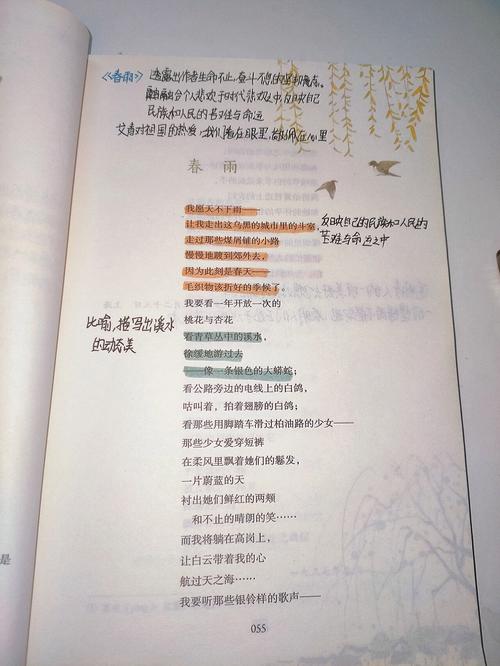 《春雨》透露出作者生命不止,奋斗不息的坚韧情志。
融融合个人悲欢于时代悲欢之中,反映自己
民族和人民的苦难与命运
艾青对祖国的热爱,我们看在眼里,
春 雨
我愿天不下雨——
让我走出这乌黑的城市里的斗室,
走过那些煤屑铺的小路
慢慢地踱到郊外去,
因为此刻是春天——
毛织物该折好的季候了。
我要看一年开放一次的
桃花与杏花
看青草丛中的溪水,
徐缓地游过去
——像一条银色的大蟒蛇;
看公路旁边的电线上的白鸽,
咕叫着,拍着翅膀的白鸽;
看那些用脚踏车滑过柏油路的少女——
那些少女爱穿短裤
在柔风里飘着她们的鬈发,
一片蔚蓝的天
衬出她们鲜红的两颊
和不止的晴朗的笑……
而我将躺在高岗上,
让白云带着我的心
航过天之海……
我要听那些银铃样的歌声——
反映自己的民族和人民的
苦难与命运之中
比喻,描写出溪水
的动态美
是
055